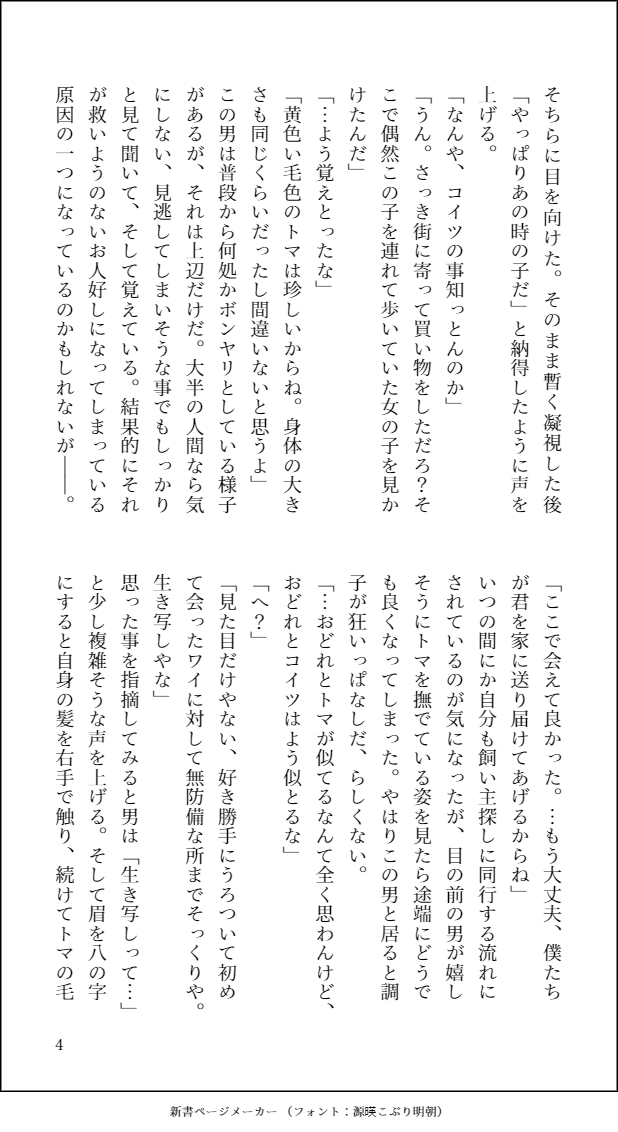 そちらに目を向けた。そのまま暫く凝視した後
「やっぱりあの時の子だ」と納得したように声を
上げる。
「なんや、コイツの事知っとんのか」
「うん。さっき街に寄って買い物をしただろ？そ
こで偶然この子を連れて歩いていた女の子を見か
けたんだ」
「…よう覚えとったな」
「黄色い毛色のトマは珍しいからね。身体の大き
さも同じくらいだったし間違いないと思うよ」
この男は普段から何処かボンヤリとしている様子
があるが、それは上辺だけだ。大半の人間なら気
にしない、見逃してしまいそうな事でもしっかり
と見て聞いて、そして覚えている。結果的にそれ
が救いようのないお人好しになってしまっている
原因の一つになっているのかもしれないが――。
「ここで会えて良かった。…もう大丈夫、僕たち
が君を家に送り届けてあげるからね」
いつの間にか自分も飼い主探しに同行する流れに
されているのが気になったが、目の前の男が嬉し
そうにトマを撫でている姿を見たら途端にどうで
も良くなってしまった。やはりこの男と居ると調
子が狂いっぱなしだ、らしくない。
「…おどれとトマが似てるなんて全く思わんけど、
おどれとコイツはよう似とるな」
「へ？」
「見た目だけやない、好き勝手にうろついて初め
て会ったワイに対して無防備な所までそっくりや。
生き写しやな」
思った事を指摘してみると男は「生き写しって…」
と少し複雑そうな声を上げる。そして眉を八の字
にすると自身の髪を右手で触り、続けてトマの毛
4
新書ページメーカー（フォント：源暎こぶり明朝）